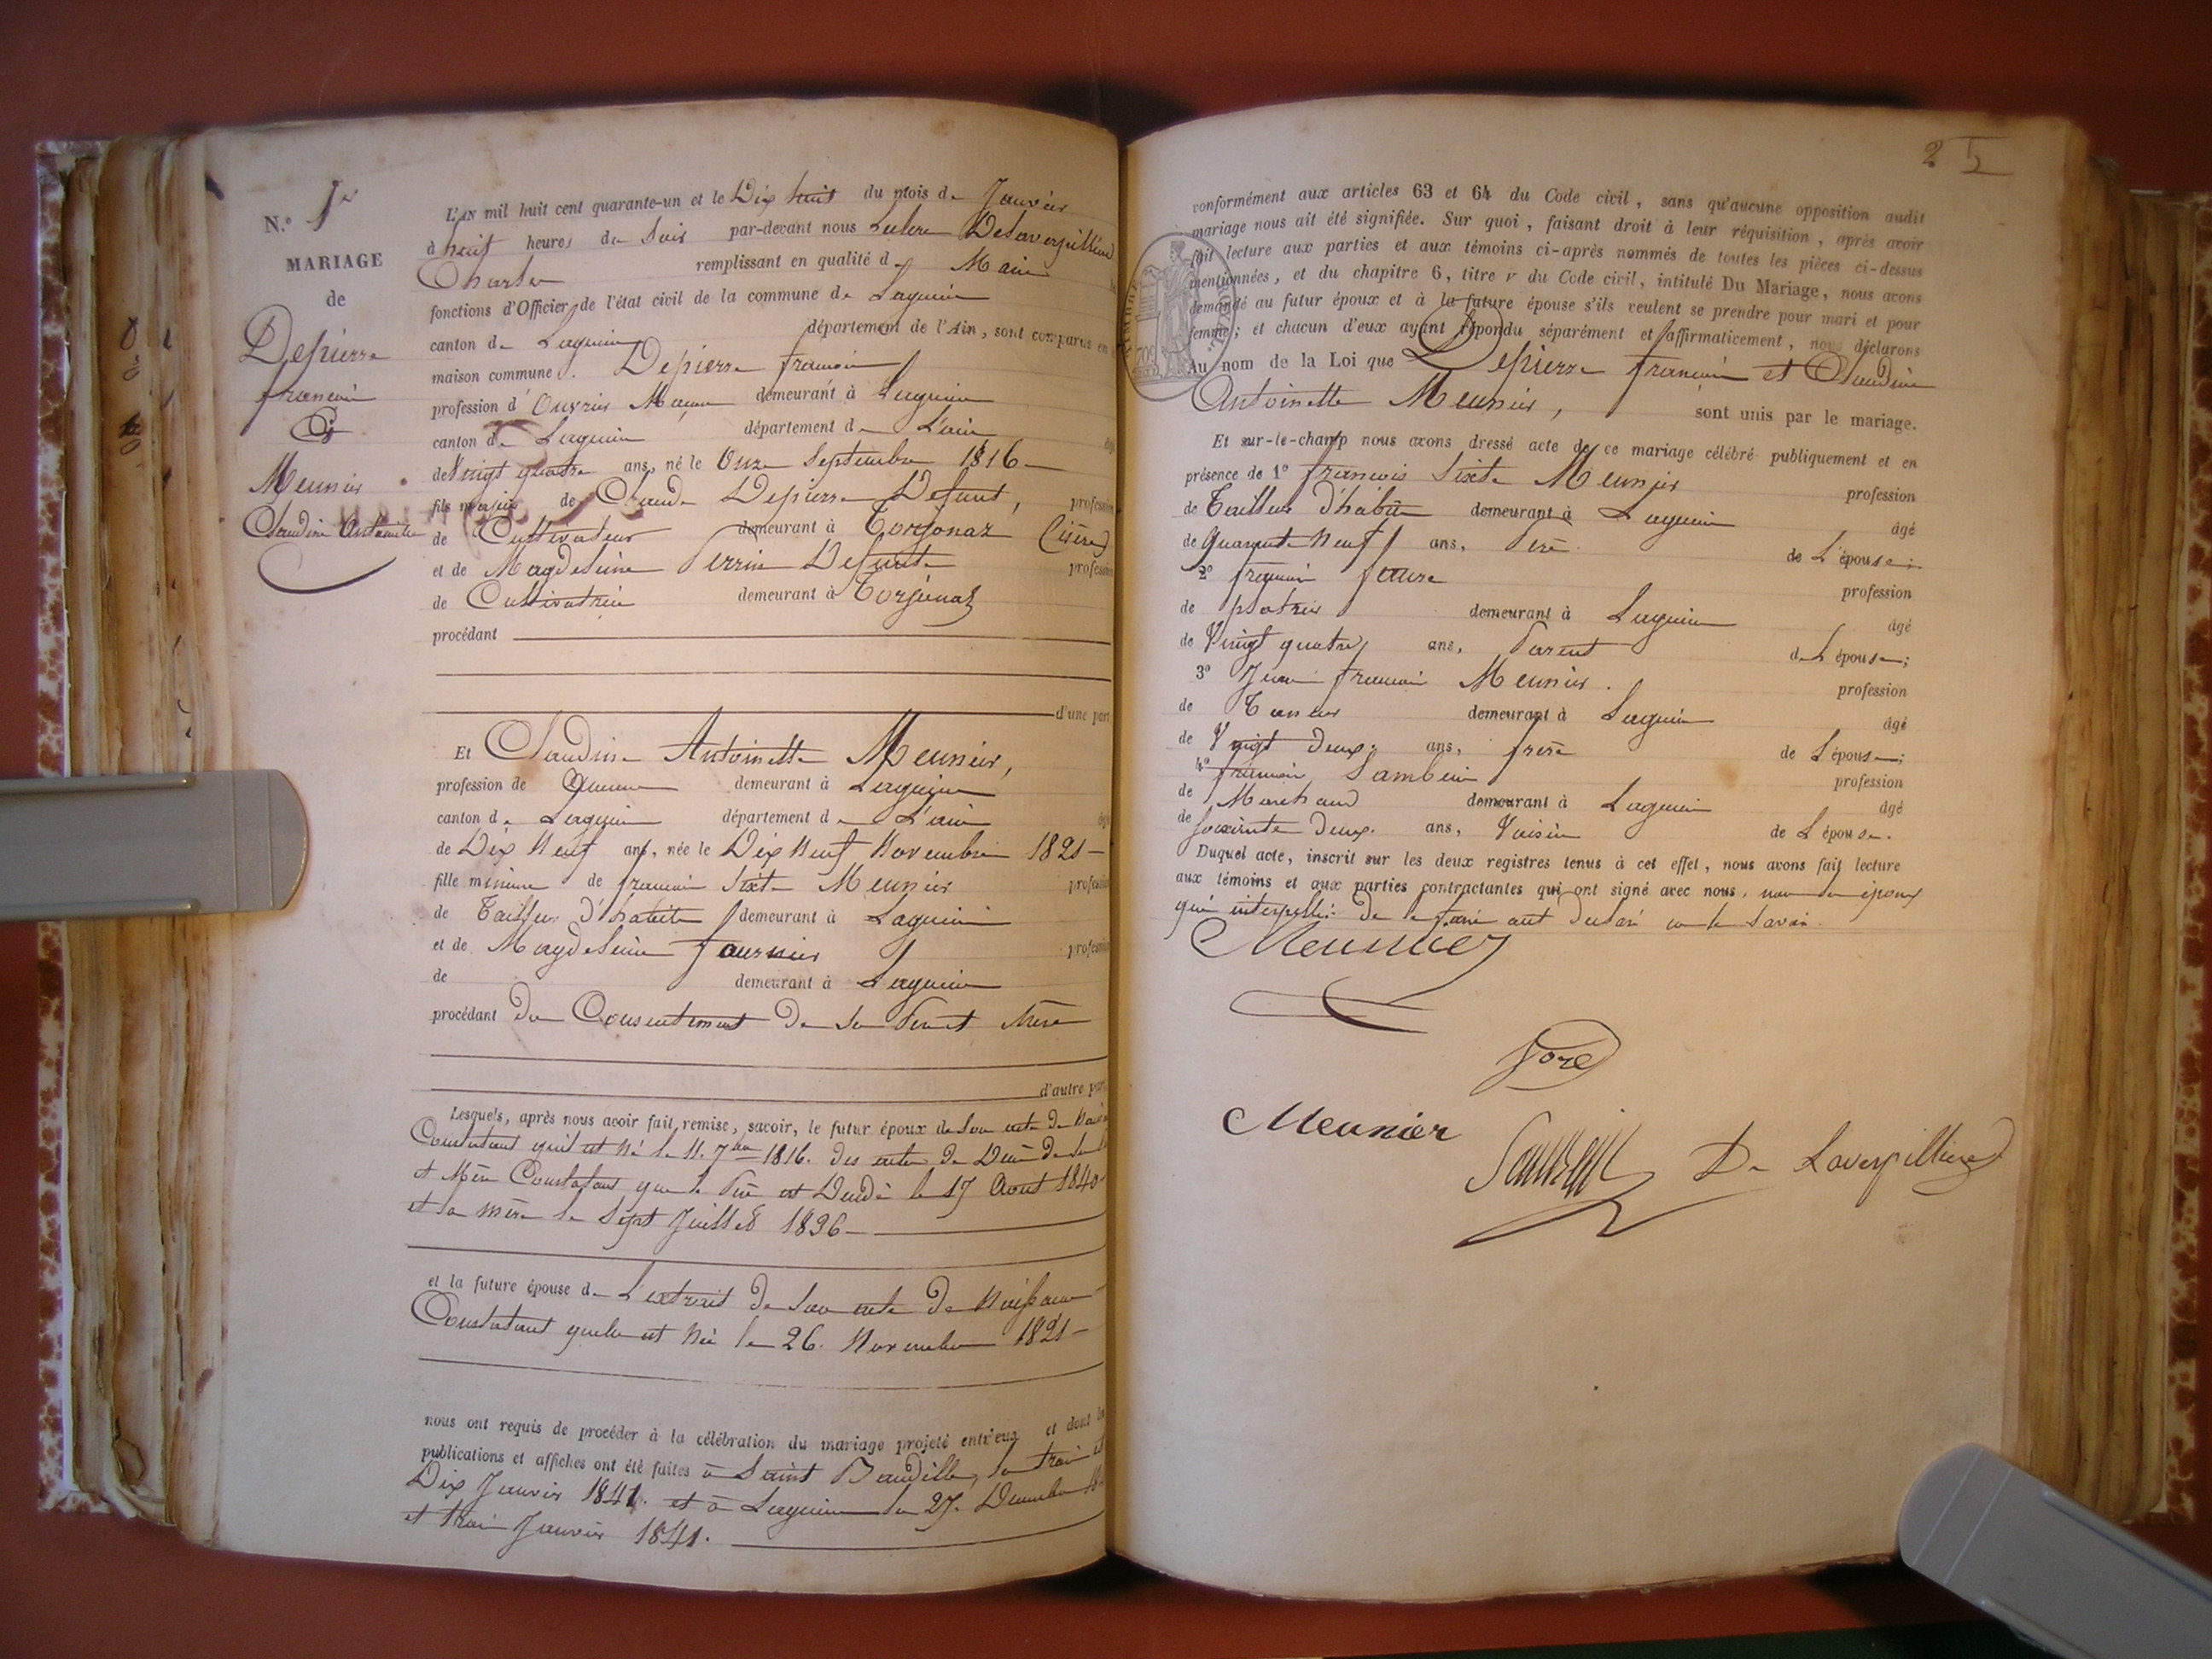 N.° 1er
MARIAGE
de
Depierre
francois
Et
Meunier
Claudine Antoinette
L'AN mil huit cent quarante-un et le Dix huit du mois de Janvier
à huit heures du Soir par-devant nous Delaverpilliere
Charles remplissant en qualité de Maire
fonctions d'Officier de l'état civil de la commune de Lagnieu
canton de Lagnieu département de l'Ain, sont comparus en
maison commune. Depierre francois
profession d' Ouvrier Maçon demeurant à Lagnieu
canton de Lagnieu département de L'ain
de Vingt quatre ans, né le Onze Septembre 1816
fils majeur de Claude Depierre Defunt, profession
de Cultivateur demeurant à Torjonaz (isère)
et de Magdeleine Perrin Defunte profession
de Cultivatrice demeurant à Torjonaz
procédant
d'une part
Et Claudine Antoinette Meunier,
profession de demeurant à Lagnieu
canton de Lagnieu département de L'ain
de Dix Neuf ans, née le Dix Neuf Novembre 1821
fille mineure de francois Sixte Meunier profession
de Tailleur d'habits demeurant à Lagnieu
et de Magdeleine fournier profession
de demeurant à Lagnieu
procédant du Consentement de ses Pere et Mère
d'autre part
Lesquels, après nous avoir fait remise, savoir, le futur époux de son acte de
Constatant qu'il est né le 11. 7bre 1816. des actes de Décès de ses
et Mère Constatant que le Père est Décédé le 17 Aout 1840
et la mère le Sept Juillet 1836
et la future épouse de L'extrait de son acte de Naissance
Constatant quelle est Née le 26. Novembre 1821
nous ont requis de procéder à la célébration du mariage projeté entr'eux et dont les
publications et affiches ont été faites à Saint Baudille, le trois et
Dix Janvier 1841. et à Lagnieu le 27. Decembre
et trois Janvier 1841.
2
conformément aux articles 63 et 64 du Code civil, sans qu'aucune opposition audit
mariage nous ait été signifiée. Sur quoi, faisant droit à leur réquisition, après avoir
fait lecture aux parties et aux témoins ci-après nommés de toutes les pièces ci-dessus
mentionnées, et du chapitre 6, titre v du Code civil, intitulé Du Mariage, nous avons
demandé au futur époux et à la future épouse s'ils veulent se prendre pour mari et pour
femme; et chacun d'eux ayant répondu séparément et affirmativement, nous déclarons
Au nom de la Loi que Depierre francois et Claudine
Antoinette Meunier, sont unis par le mariage.
Et sur-le-champ nous avons dressé acte de ce mariage célébré publiquement et en
présence de 1° francois Sixte Meunier profession
de Tailleur D'habits demeurant à Lagnieu âgé
de Quarante Neuf ans, Père de L'épouse;
2° francois profession
de platrier demeurant à Lagnieu âgé
de Vingt quatre ans, Parent de L'épouse;
3° Jean francois Meunier. profession
de Taneur demeurant à Lagnieu âgé
de Vingt Deux ans, frère de L'épouse;
4° francois Sambuis profession
de Marchand demeurant à Lagnieu âgé
de Soixante Deux ans, Voisin de L'épouse.
Duquel acte, inscrit sur les deux registres tenus à cet effet, nous avons fait lecture
aux témoins et aux parties contractantes qui ont signé avec nous, non les époux
qui interpellés De le faire ont declaré ne le Savoir.
Meunier
fore
Meunier
De Laverpilliere